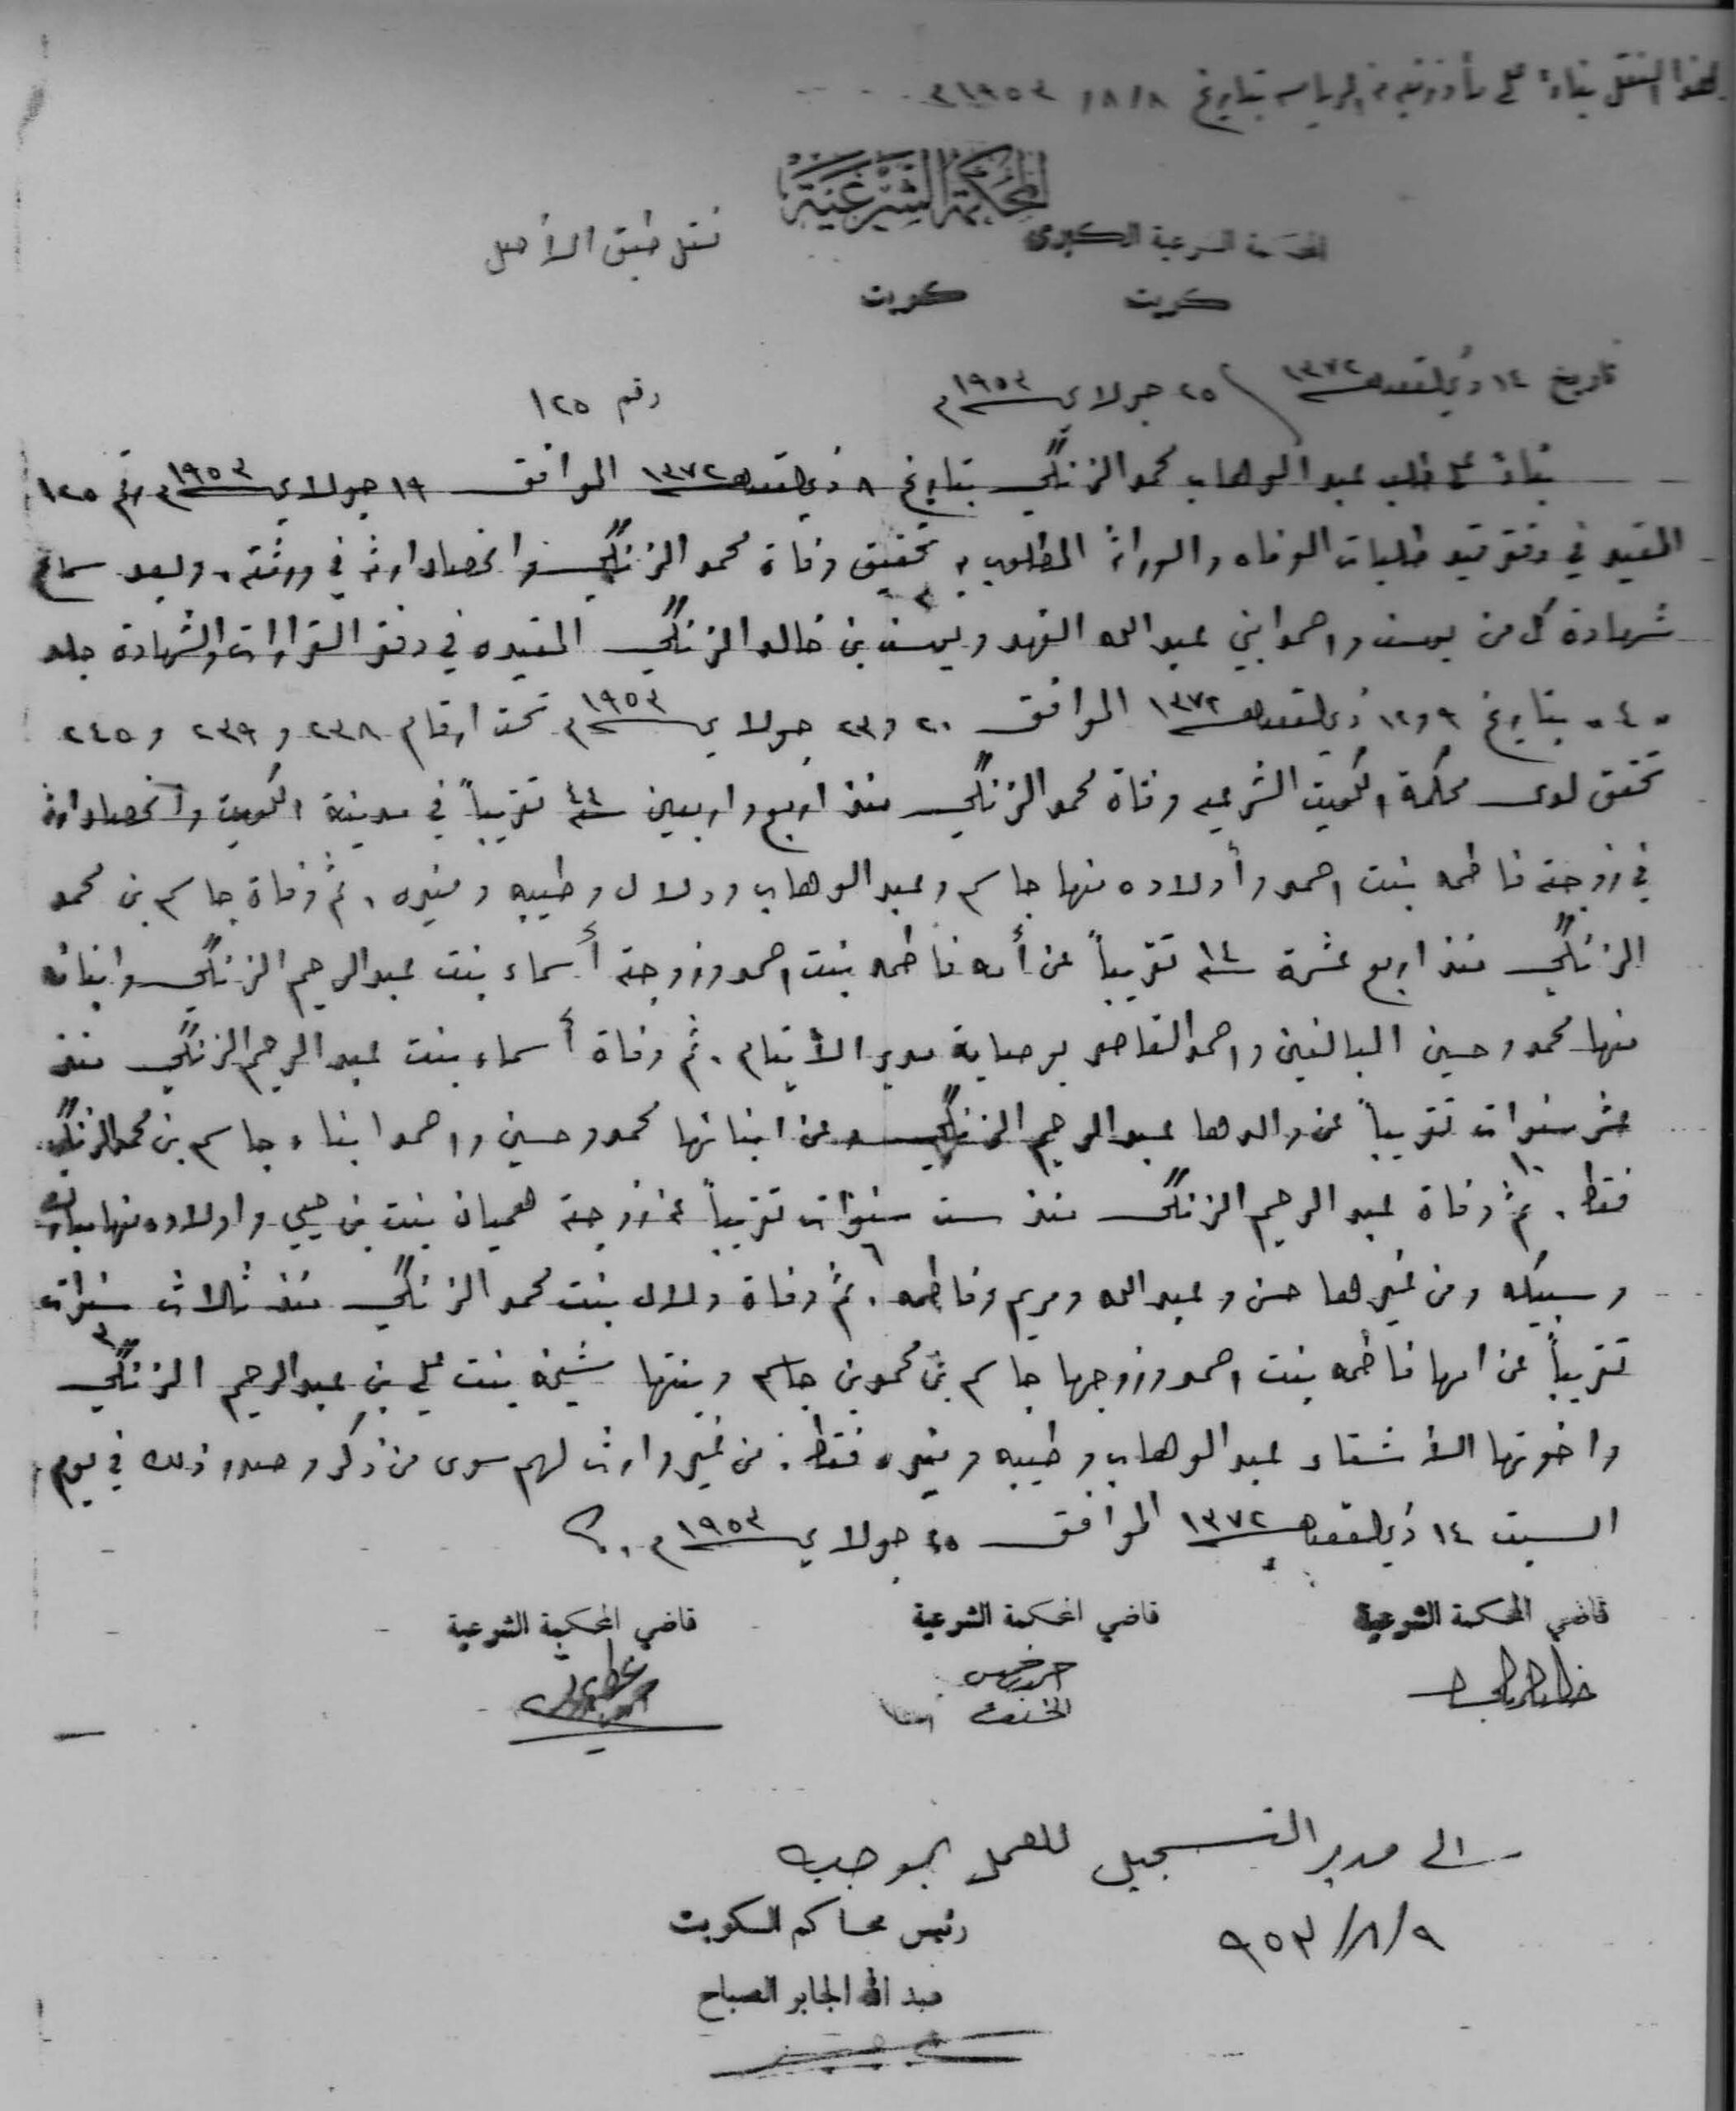 هذا النقل بناءً على مأذونية من الرياسه بتاريخ ٨/٨/ ١٩٥٣م
المحكمة الشرعية
المحكمة الشرعية الكبرى
نقل طبق الأصل
كويت
كويت
تاريخ ١٤ ذي القعده سنة ١٣٧٢ / ٢٥ جولاي سنة ١٩٥٣م
رقم ١٢٥
بناءً على طلب عبد الوهاب محمد الزنگي بتاريخ ٨ ذي القعده سنة ١٣٧٢ الموافق ١٩ جولاي سنة ١٩٥٣م رقم ١٢٥
المقيد في دفتر قيد طلبات الوفاه والوراثة المطلوب به تحقيق وفاة محمد الزنگي وانحصار ارثه في ورثته، وبعد سماع
شهادة كل من يوسف واحمد ابني عبدالله الفهد ويوسف بن خالد الزنگي المقيده في دفتر القرارات والشهادة جلد
٤٠ بتاريخ ٩ و١٢ ذي القعده سنة ١٣٧٢ الموافق ٢٠ و٢٣ جولاي سنة ١٩٥٣م تحت ارقام ٢٣٨ و ٢٣٩ و ٢٤٥
تحقق لدى محكمة الكويت الشرعيه وفاة محمد الزنگي منذ اربع واربعين سنة ٤٤ تقريباً في مدينة الكويت وانحصار ارثه
في زوجته فاطمه بنت احمد وأولاده منها جاسم وعبد الوهاب ودلال وطيبه ومنيره، ثم وفاة جاسم بن محمد
الزنگي منذ اربع عشرة سنة ١٤ تقريباً عن أمه فاطمه بنت احمد وزوجته أسماء بنت عبدالرحيم الزنگي وابنائه
منها محمد وحسين البالغين واحمد القاصر بوصاية مدير الأيتام. ثم وفاة أسماء بنت عبد الرحيم الزنگي منذ
عشر سنوات تقريباً عن والدها عبد الرحيم الزنگي وعن ابنائها محمد وحسين واحمد ابناء جاسم بن محمد الزنگي
١٠
فقط. ثم وفاة عبد الرحيم الزنگي منذ ست سنوات تقريباً عن زوجته هميان بنت بن حيي واولاده منها
٦
وسبيكه ومن غيرها حسن وعبدالله ومريم وفاطمه. ثم وفاة دلال بنت محمد الزنگي منذ ثلاث سنوات
٣
تقريباً عن امها فاطمه بنت احمد وزوجها جاسم بن محمد بن جاسم وبنتها شيخه بنت علي بن عبدالرحيم الزنگي
واخوتها الأشقاء عبد الوهاب وطيبه ومنيره فقط. من غير وارث لهم سوى من ذكر وصدر ذلك في يوم
السبت ١٤ ذي القعده سنة ١٣٧٢ الموافق ٢٥ جولاي سنة ١٩٥٣م.
قاضي المحكمة الشرعية
قاضي المحكمة الشرعية
قاضي المحكمة الشرعية
الى مدير التسجيل للعمل بموجبه
٩/٨/٩٥٣
رئيس محاكم الكويت
عبد الله الجابر الصباح